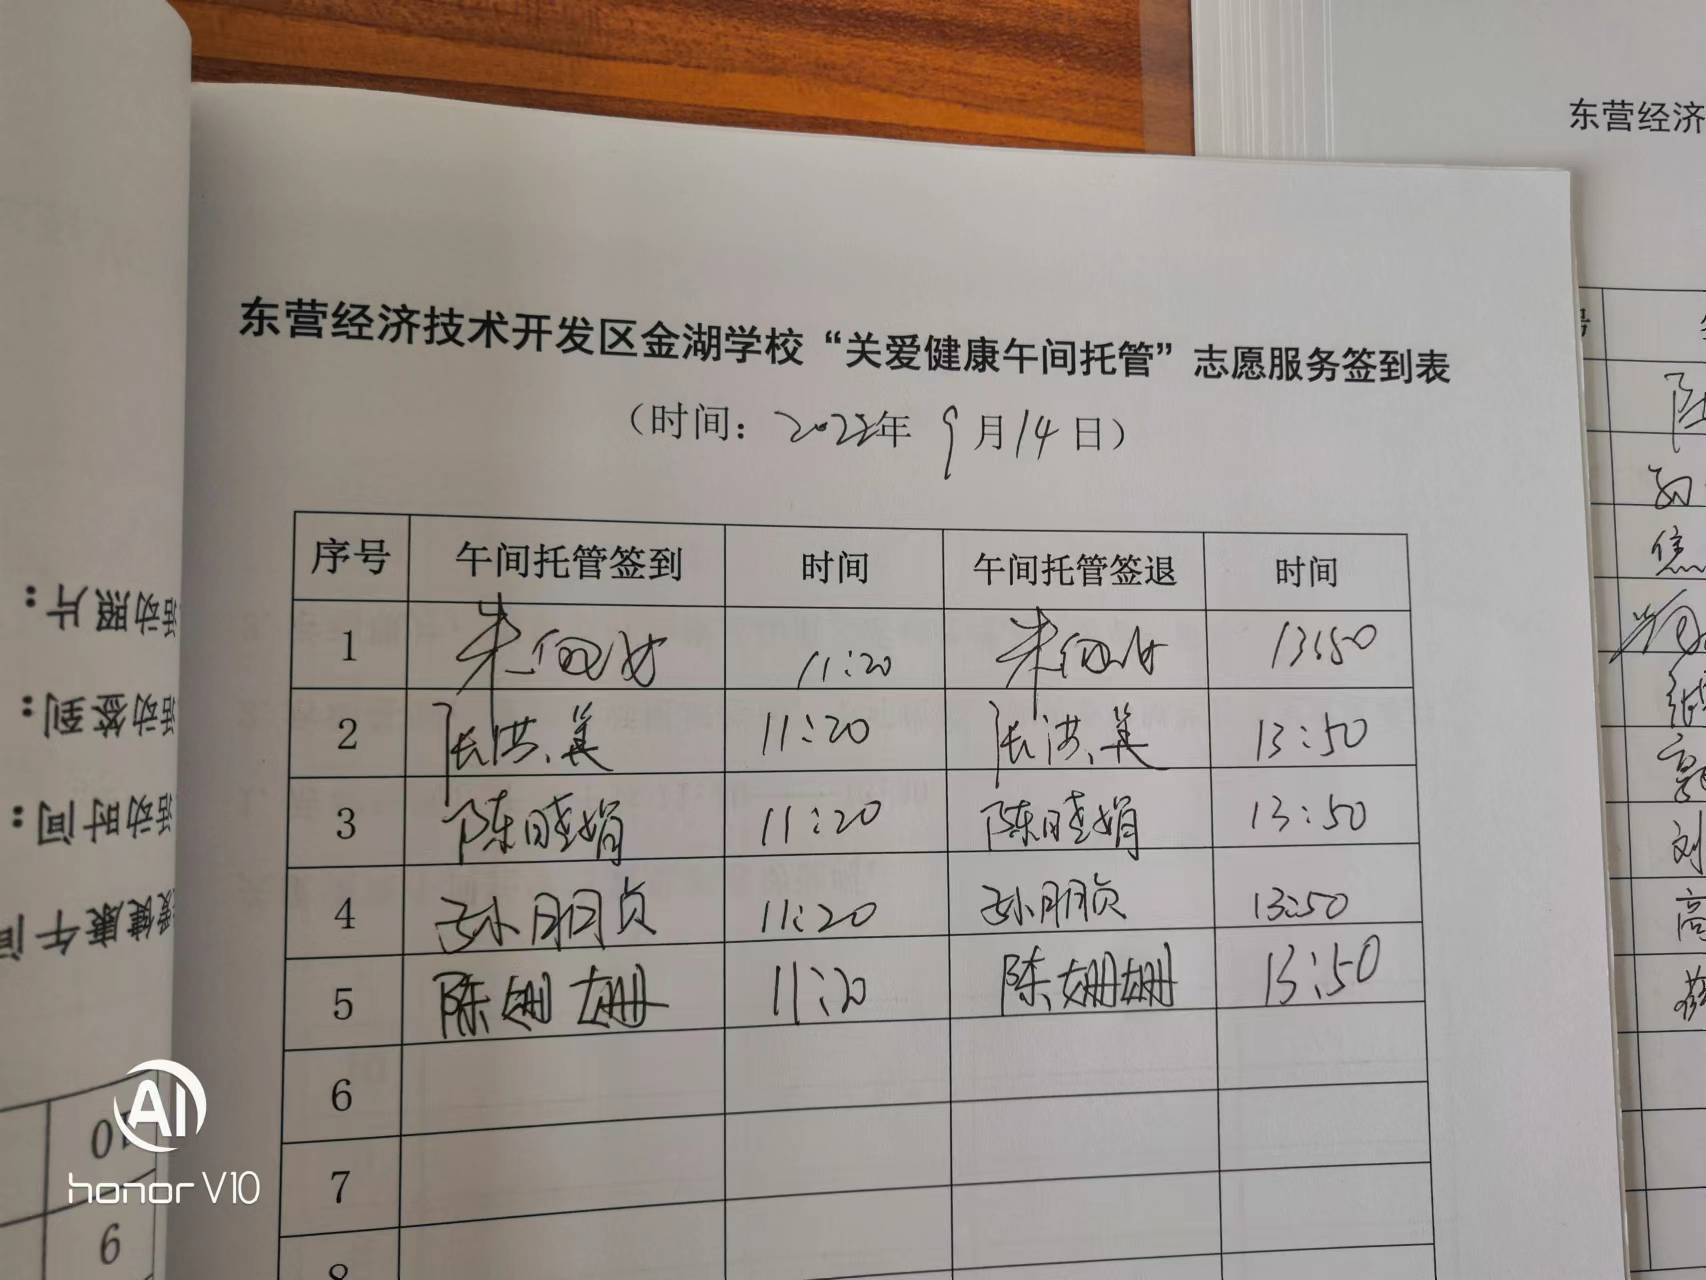 东营经济
东营经济技术开发区金湖学校“关爱健康午间托管”志愿服务签到表
(时间: 2022年 9月14日)
序号 午间托管签到 时间 午间托管签退 时间
1 11:20 13:50
2 张洪美 11:20 张洪美 13:50
3 陈晓娟 11:20 陈晓娟 13:50
4 孙朋贞 11:20 孙朋贞 13:50
5 陈姗姗 11:20 陈姗姗 13:50
6
7
8
活动照片:
活动签到:
活动时间:
爱健康午间
9
号
焦
刘
高
AI
honor V10